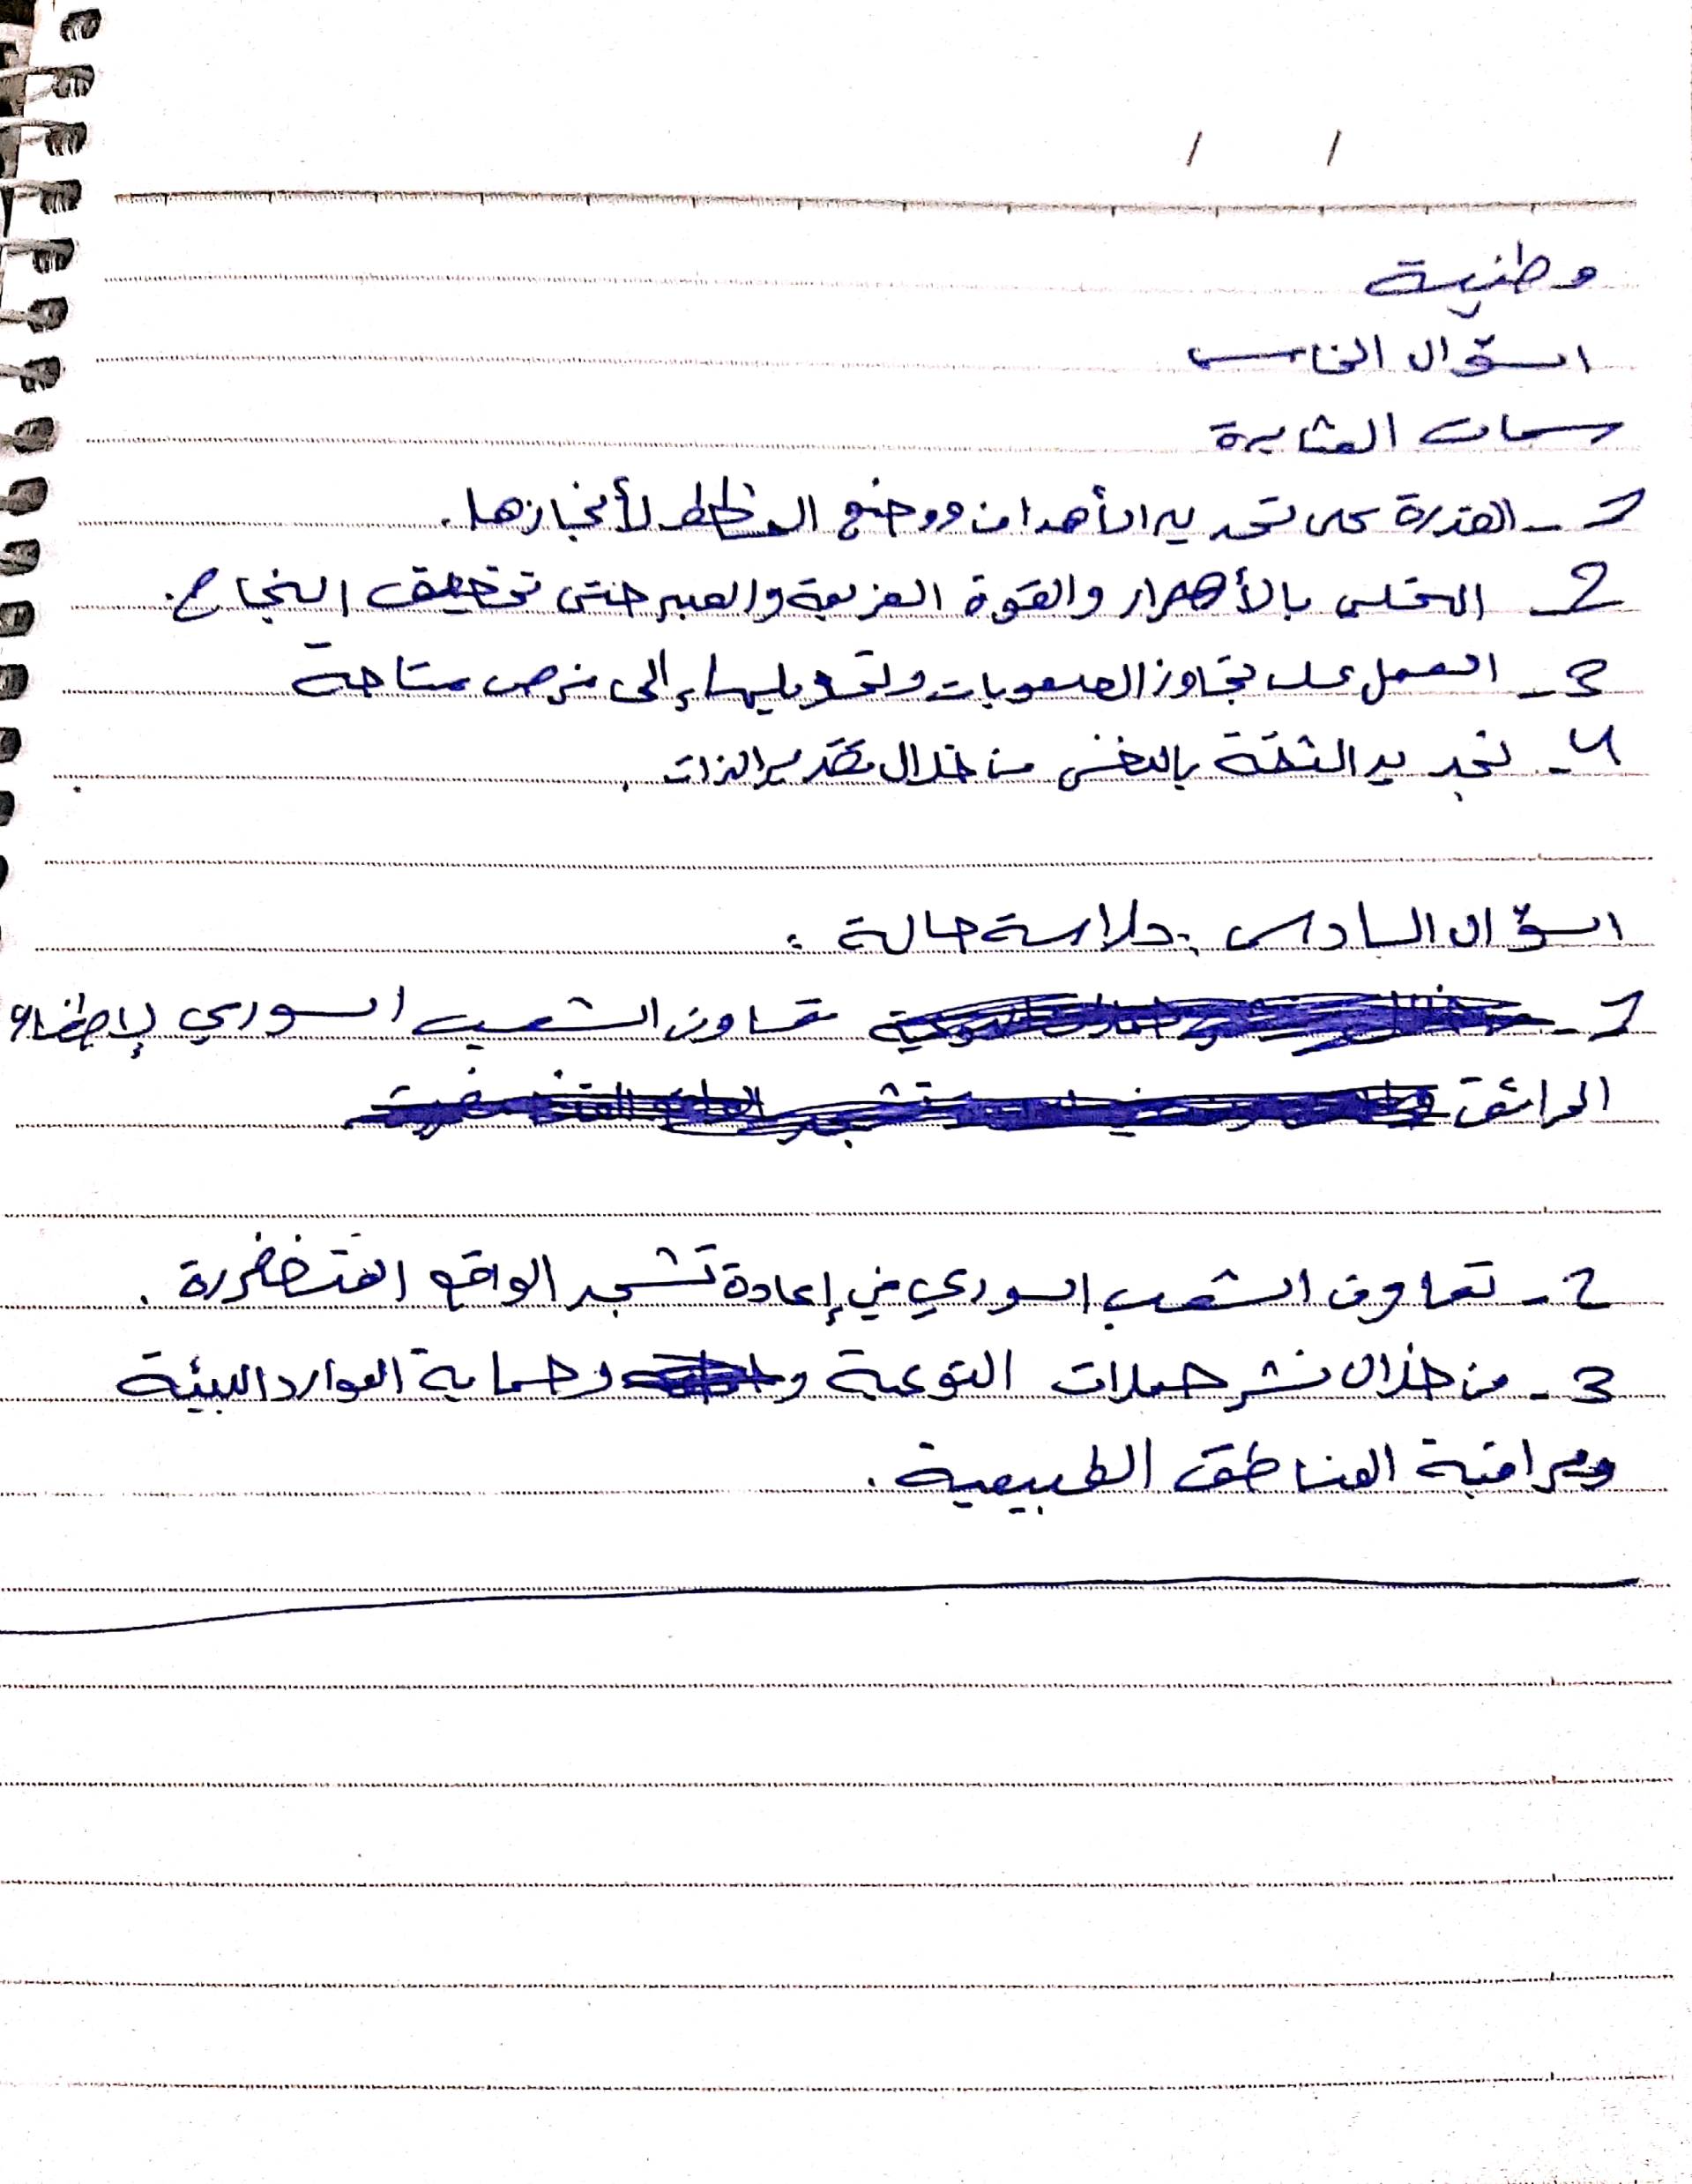 وطنية
السؤال الخامس
سمات المثابرة
1- القدرة على تحديد الأهداف ووضع الخطط لأنجازها.
2- التحلي بالأصرار والقوة العزيمة والصبر حتى تحقيق النجاح.
3- العمل على تجاوز الصعوبات وتحويلها إلى فرص متاحة
4- تجديد الثقة بالنفس من خلال تقدير الذات.
السؤال السادس: دراسة حالة:
1- تعاون الشعب السوري لإطفاء
الحرائق
2- تعاون الشعب السوري في إعادة تشجر الواقع المتضررة.
3- من خلال نشر حملات التوعية و وحماية الموارد البيئة
ومراقبة المناطق الطبيعية.